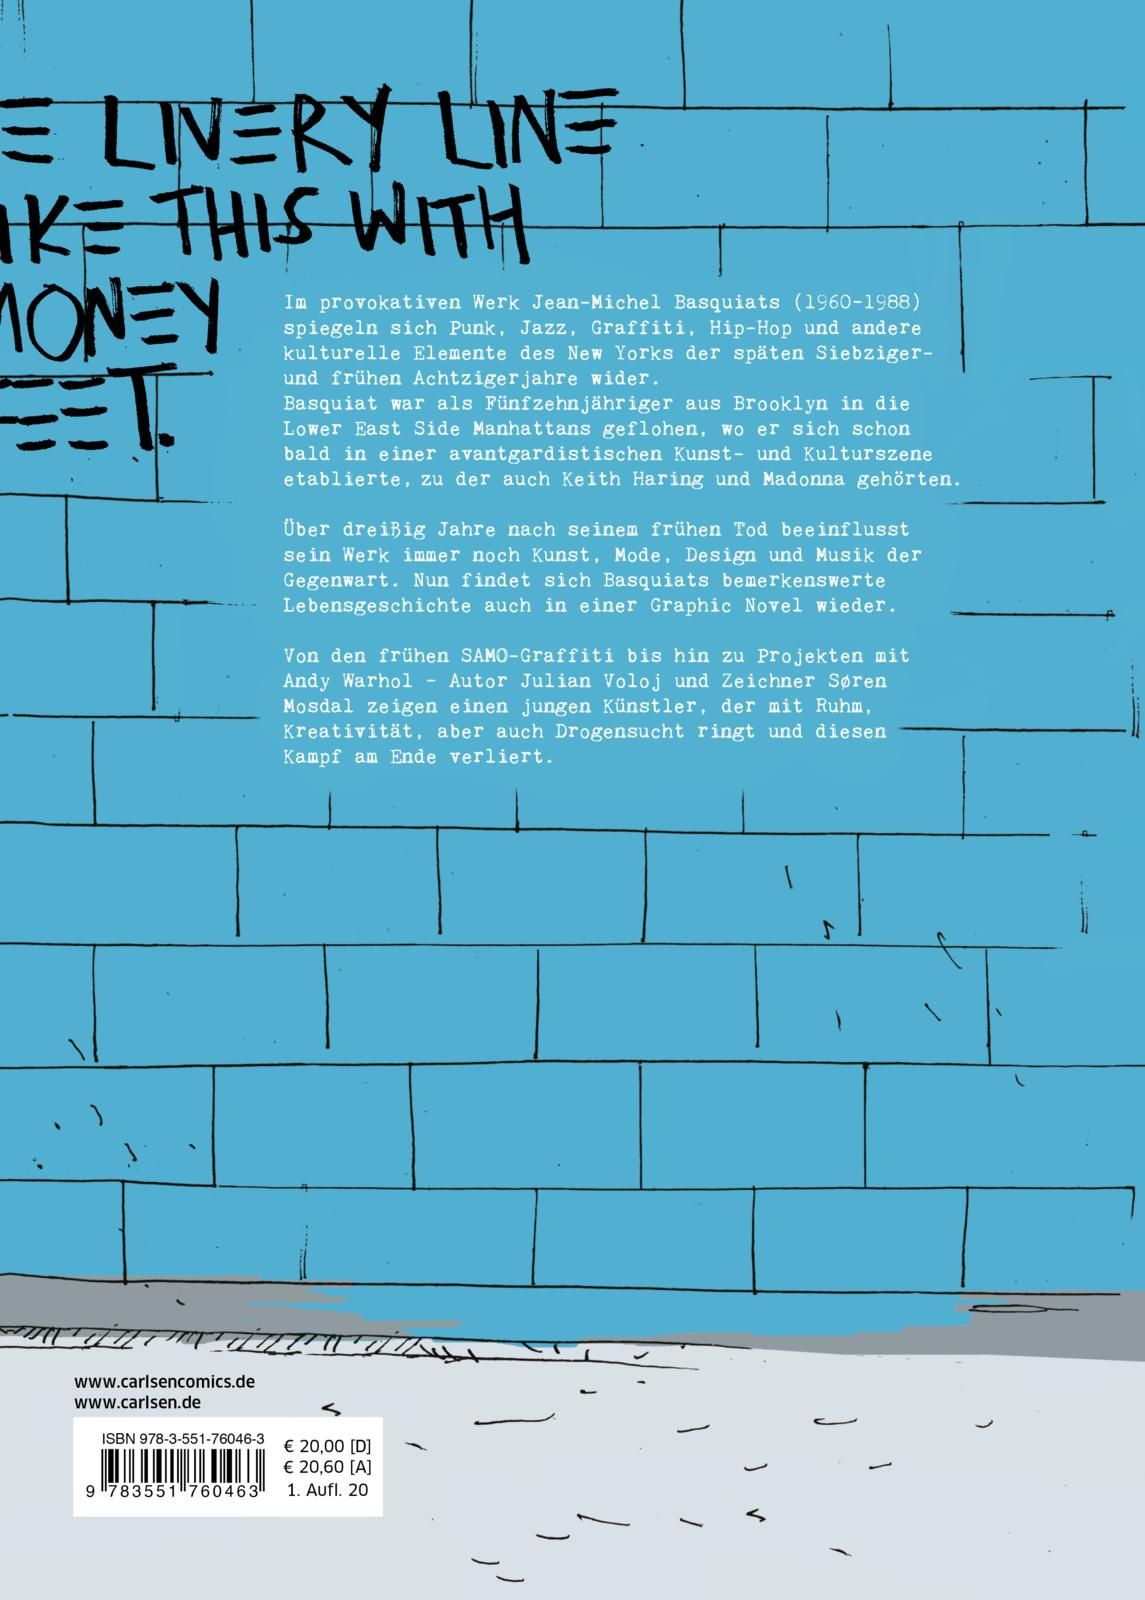 E LIVERY LINE
IKE THIS WITH
MONEY
EET.
Im provokativen Werk Jean-Michel Basquiats (1960-1988)
spiegeln sich Punk, Jazz, Graffiti, Hip-Hop und andere
kulturelle Elemente des New Yorks der späten Siebziger-
und frühen Achtzigerjahre wider.
Basquiat war als Fünfzehnjähriger aus Brooklyn in die
Lower East Side Manhattans geflohen, wo er sich schon
bald in einer avantgardistischen Kunst- und Kulturszene
etablierte, zu der auch Keith Haring und Madonna gehörten.
Über dreißig Jahre nach seinem frühen Tod beeinflusst
sein Werk immer noch Kunst, Mode, Design und Musik der
Gegenwart. Nun findet sich Basquiats bemerkenswerte
Lebensgeschichte auch in einer Graphic Novel wieder.
Von den frühen SAMO-Graffiti bis hin zu Projekten mit
Andy Warhol – Autor Julian Voloj und Zeichner Søren
Mosdal zeigen einen jungen Künstler, der mit Ruhm,
Kreativität, aber auch Drogensucht ringt und diesen
Kampf am Ende verliert.
www.carlsencomics.de
www.carlsen.de
ISBN 978-3-551-76046-3
€ 20,00 [D]
€ 20,60 [A]
1. Aufl. 20
9 783551 760463